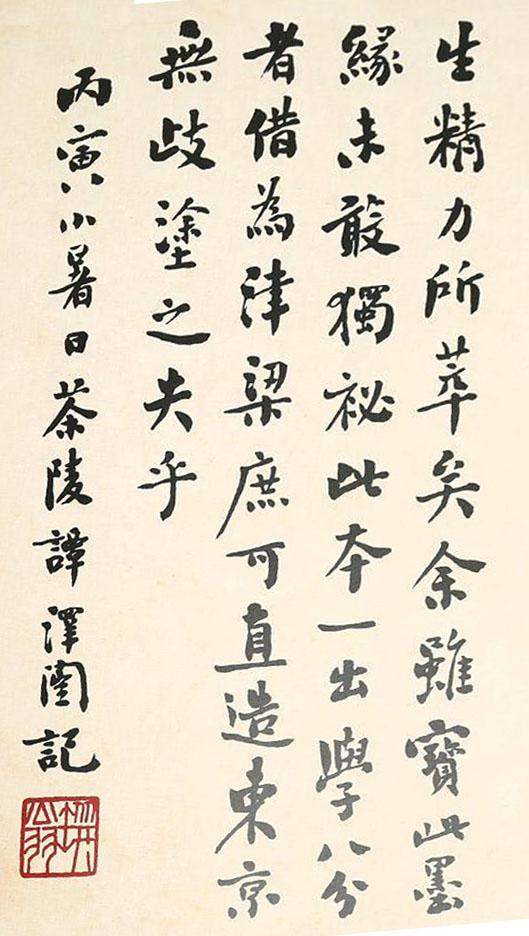 生精力所萃矣余雖寶此墨
緣未敢獨祕此本一出學八分
者借為津梁庶可直造東京
無歧塗之失乎
丙寅小暑日茶陵譚澤闓記